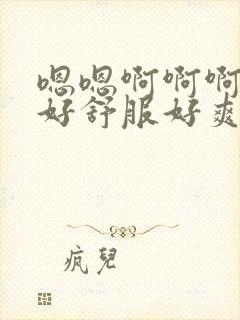 嗯嗯啊啊啊
好舒服好爽
疯兒